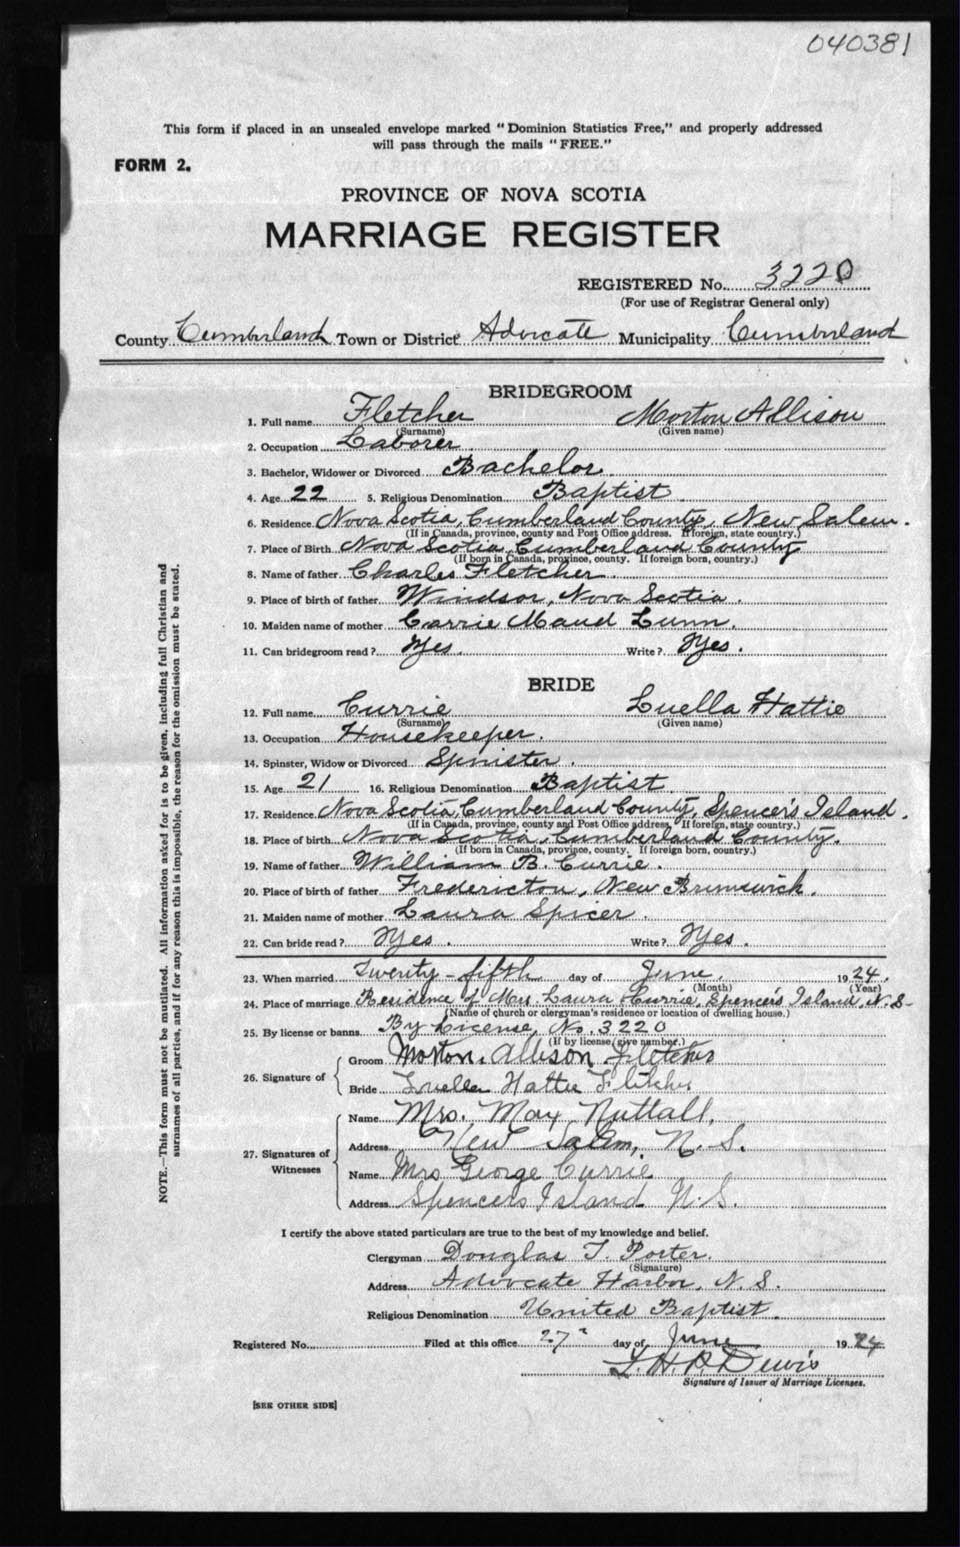 040381
This form if placed in an unsealed envelope marked "Dominion Statistics Free," and properly addressed
will pass through the mails "FREE."
FORM 2.
PROVINCE OF NOVA SCOTIA
MARRIAGE REGISTER
REGISTERED No. 3220
(For use of Registrar General only)
County Cumberland Town or District Advocate Municipality Cumberland
BRIDEGROOM
1. Full name Fletcher Morton Allison
(Surname) (Given name)
2. Occupation Laborer
3. Bachelor, Widower or Divorced Bachelor
4. Age 22 5. Religious Denomination Baptist
6. Residence Nova Scotia, Cumberland County, New Salem.
(If in Canada, province, county and Post Office address. If foreign, state country.)
7. Place of Birth Nova Scotia, Cumberland County
(If born in Canada, province, county. If foreign born, country.)
8. Name of father Charles Fletcher.
9. Place of birth of father Windsor, Nova Scotia.
10. Maiden name of mother Carrie Maud Lunn.
11. Can bridegroom read? Yes. Write? Yes.
BRIDE
12. Full name Currie Luella Hattie
(Surname) (Given name)
13. Occupation Housekeeper.
14. Spinster, Widow or Divorced Spinister.
15. Age 21 16. Religious Denomination Baptist
17. Residence Nova Scotia, Cumberland County, Spencer's Island.
(If in Canada, province, county and Post Office address. If foreign, state country.)
18. Place of birth Nova Scotia, Cumberland County.
(If born in Canada, province, county. If foreign born, country.)
19. Name of father William B. Currie.
20. Place of birth of father Fredericton, New Brunswick.
21. Maiden name of mother Laura Spicer.
22. Can bride read? Yes. Write? Yes.
23. When married Twenty-fifth day of June. 1924.
(Month) (Year)
24. Place of marriage Residence of Mrs. Laura Currie, Spencer's Island, N.S.
(Name of church or clergyman's residence or location of dwelling house.)
25. By license or banns. By License, No. 3220
(If by license, give number.)
26. Signature of
Groom Morton. Allison Fletcher
Bride Luella Hattie Fletcher
27. Signatures of Witnesses
Name Mrs. May Nuttall,
Address New Salem, N.S.
Name Mrs George Currie
Address Spencers Island N.S.
I certify the above stated particulars are true to the best of my knowledge and belief.
Clergyman Douglas T. Porter.
(Signature)
Address Advocate Harbor, N.S.
Religious Denomination United Baptist.
Registered No. Filed at this office 27 day of June 1924
L.H.P. Dewis
Signature of Issuer of Marriage Licenses.
[SEE OTHER SIDE]
NOTE.—This form must not be mutilated. All information asked for is to be given, including full Christian and
surnames of all parties, and if for any reason this is impossible, the reason for the omission must be stated.